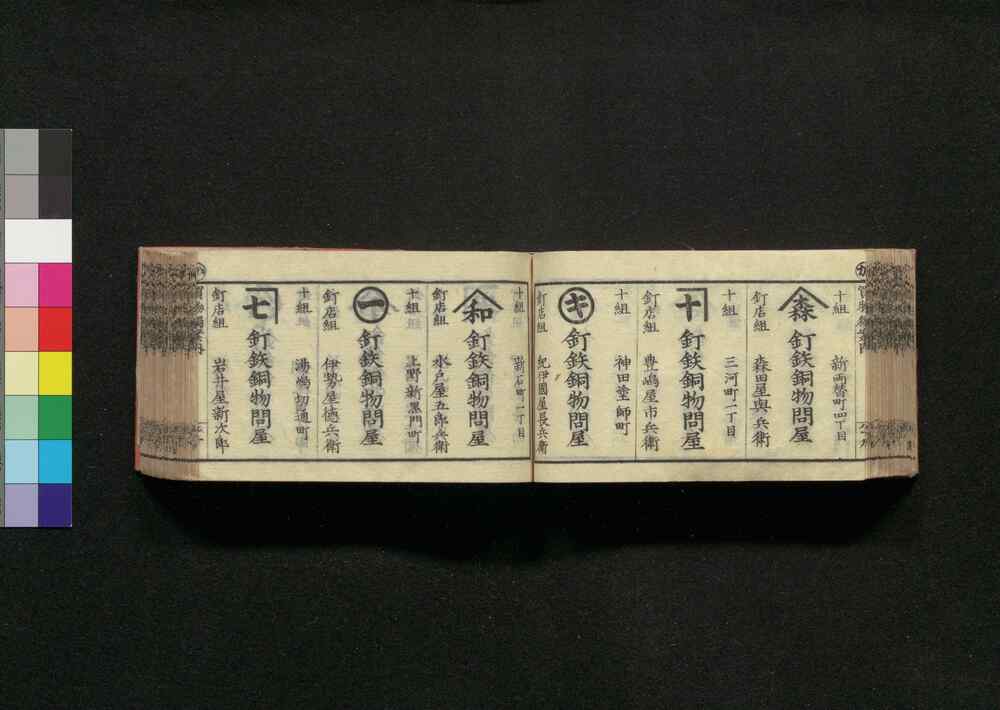 十組
新両替町四丁目
森
釘鉄銅物問屋
釘店組
森田屋與兵衛
十組
三河町二丁目
十
釘鉄銅物問屋
釘店組
豊嶋屋市兵衛
十組
神田塗師町
キ
釘鉄銅物問屋
釘店組
紀伊國屋長兵衛
十組
新石町一丁目
和
釘鉄銅物問屋
釘店組
水戸屋五郎兵衛
十組
上野新黒門町
一
釘鉄銅物問屋
釘店組
伊勢屋徳兵衛
十組
湯嶋切通町
七
釘鉄銅物問屋
釘店組
岩井屋新次郎